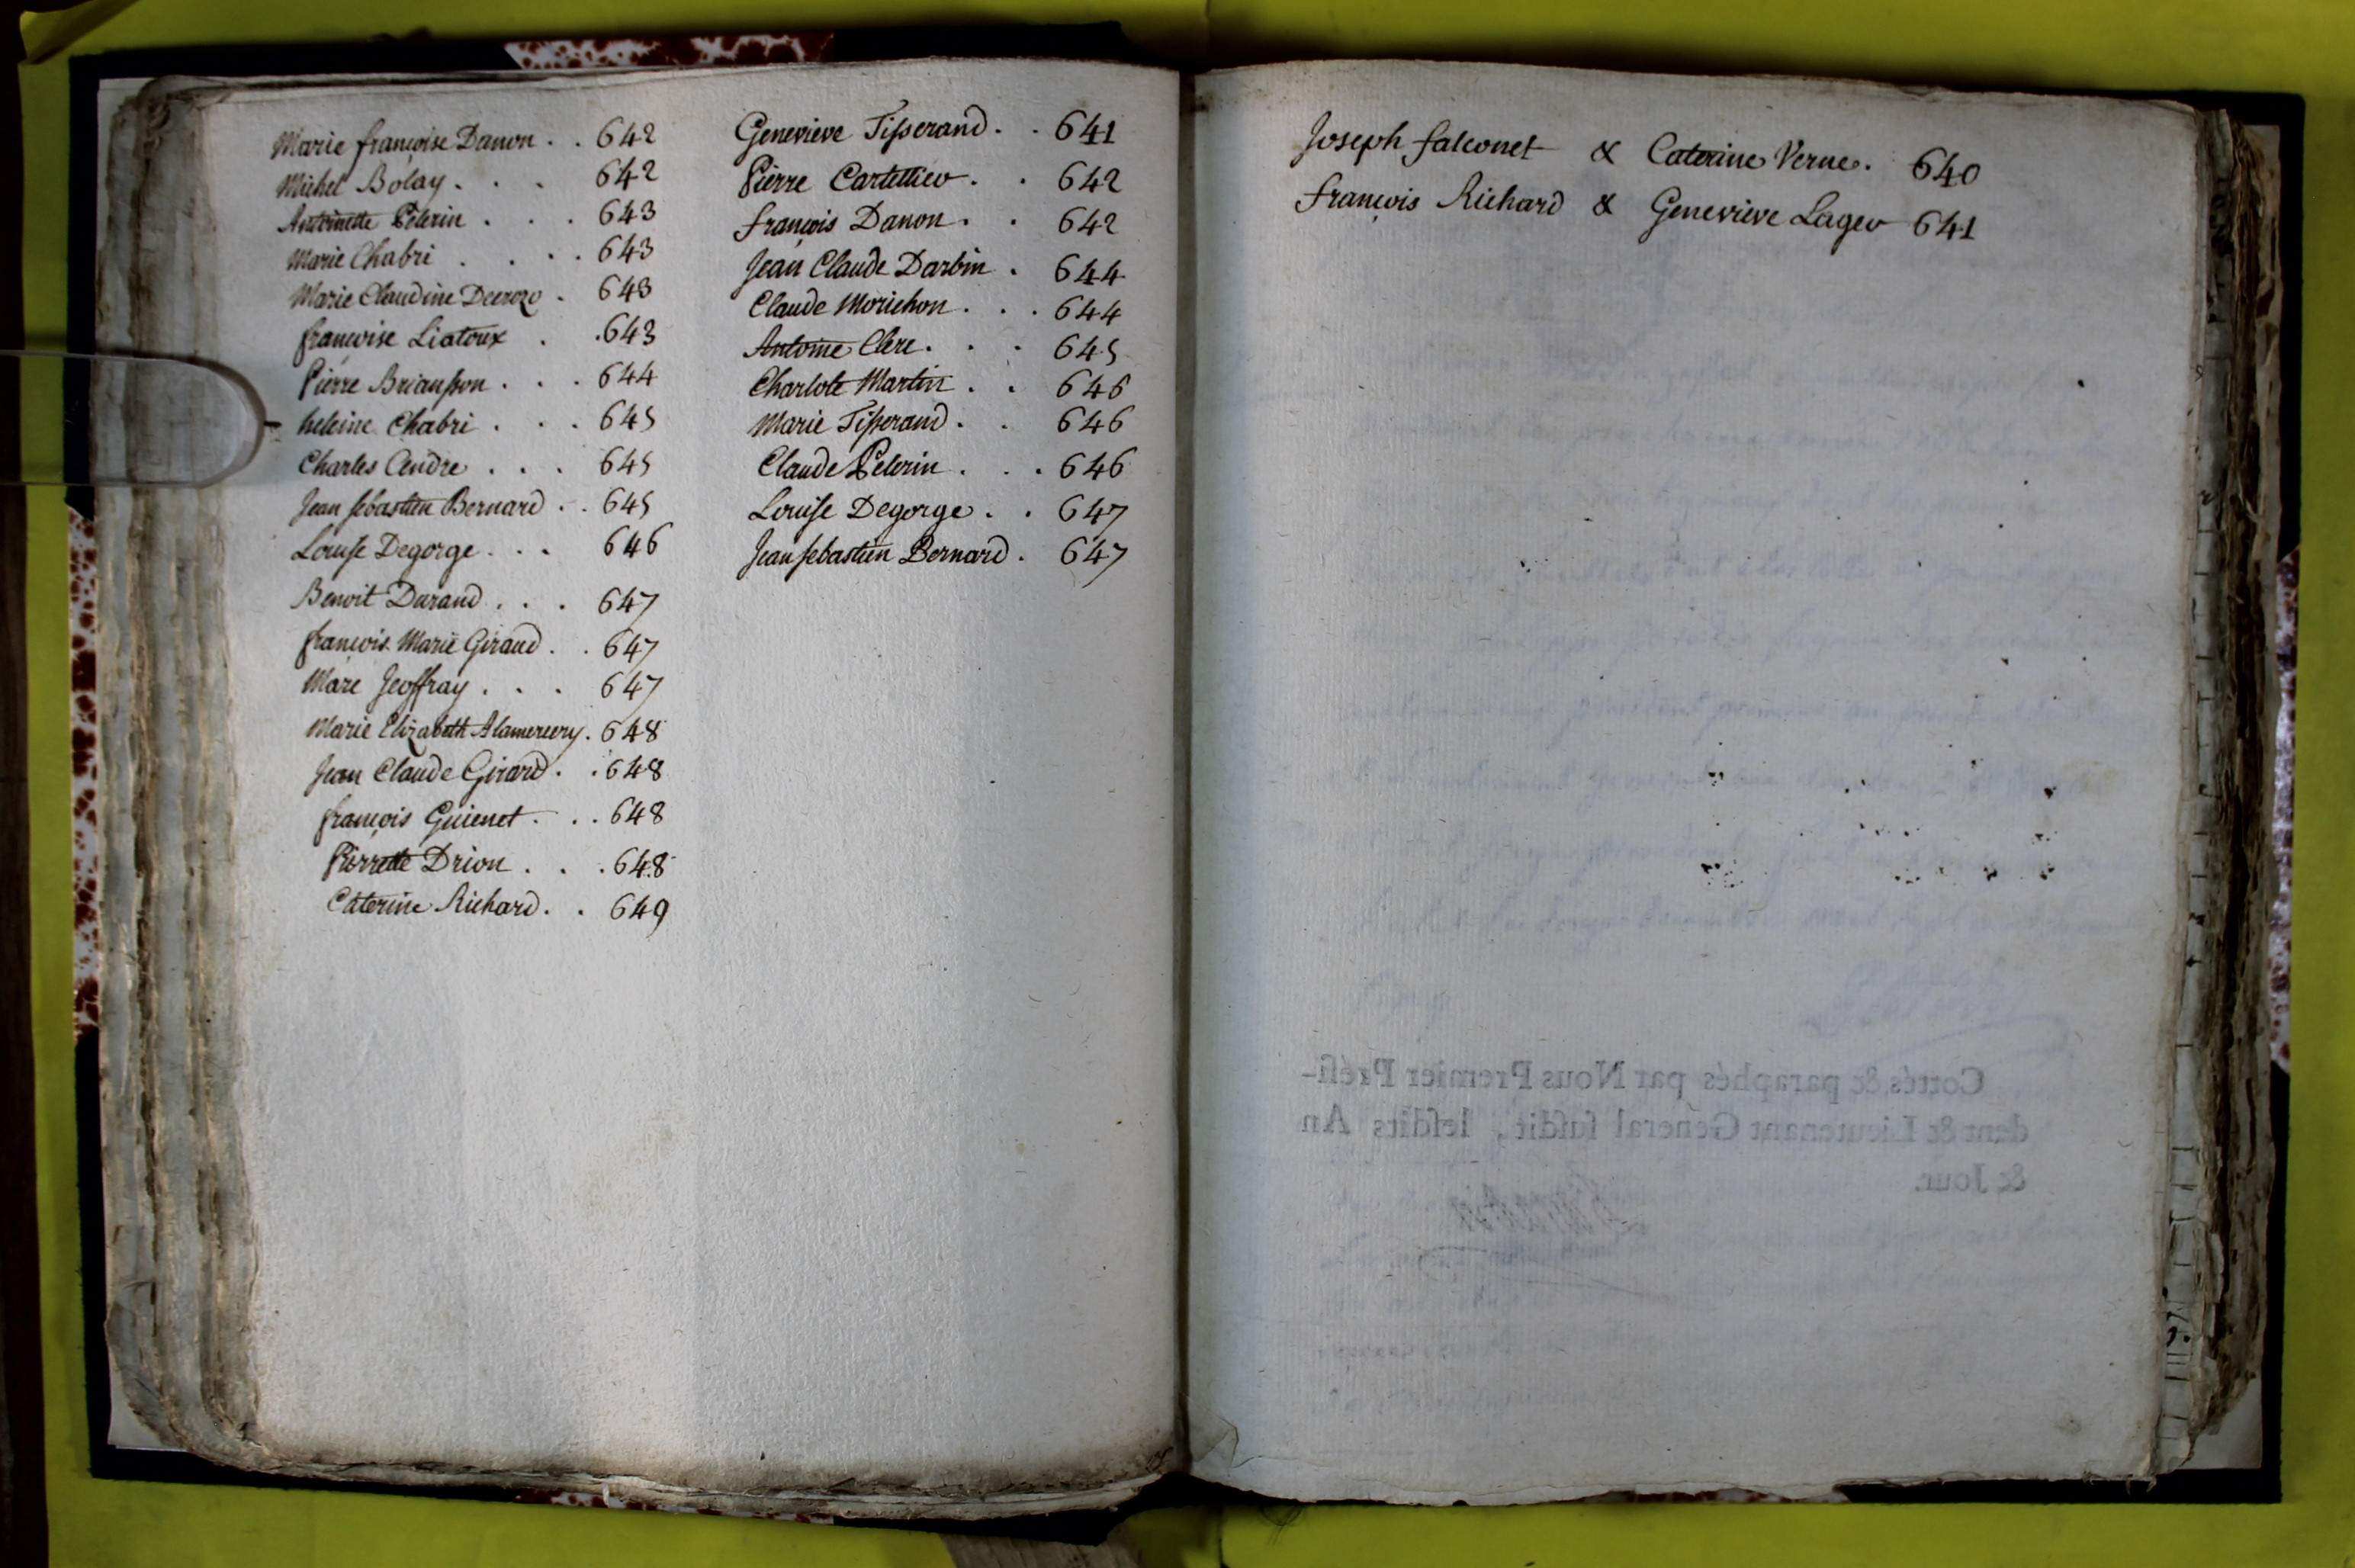 Marie françoise Danon . . 642
Michel Bolay . . . 642
Antoinette Pelerin . . . 643
Marie Chabri . . . . 643
Marie Claudine Decrozo . 643
françoise Liatoux . . 643
Pierre Briansson . . . 644
heleine Chabri . . . 645
Charles Andre . . . 645
Jean sebastien Bernard . . 645
Louise Degorge . . . 646
Benoit Durand . . . 647
françois Marie Giraud . . 647
Marc Jeoffray . . . 647
Marie Elizabeth Alamercery . 648
Jean Claude Girard . . 648
françois Guienet . . . 648
Pierrette Drion . . . 648
Caterine Richard . . 649
Genevieve Tisserand . . 641
Pierre . . 642
françois Danon . . 642
Jean Claude Darbin . 644
Claude Morichon . . . 644
Antoine Clere . . . 645
Charlote Martin . . 646
Marie Tisserand . . 646
Claude Pelerin . . . 646
Louise Degorge . . 647
Jean sebastien Bernard . 647
Joseph falconet & Caterine Verne . 640
françois Richard & Genevieve Lager 641
Cottés & paraphés par Nous Premier Prési-
dent & Lieutenant Général susdit, lesdits An
& Jour.